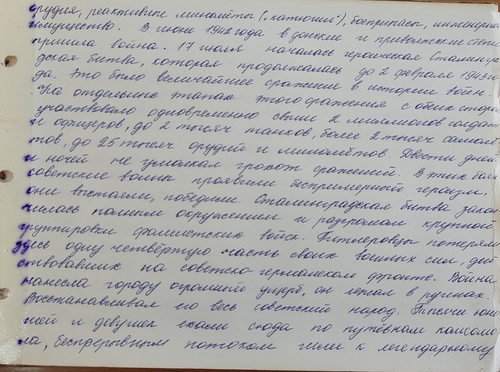 орудия, реактивные миномёты ("катюши"), боеприпасы, инженерное
имущество. В июне 1942 года в донские и приволжские степи
пришла война. 17 июля началась героическая Сталинград-
дская битва, которая продолжалась до 2 февраля 1943 го-
да. Это было величайшее сражение в истории войн.
На отдельных этапах этого сражения с обеих сторон
участвовало одновременно свыше 2 миллионов солдат
и офицеров, до 2 тысяч танков, более 2 тысяч самолё-
тов, до 25 тысяч орудий и миномётов. Двести дней
и ночей не умолкал грохот сражений. В этих боях
советские воины проявили беспримерный героизм,
они выстояли, победили. Сталинградская битва закон-
чилась полным окружением и разгромом крупной
группировки фашистских войск. Гитлеровцы потеряли
здесь одну четвёртую часть своих военных сил, дей-
ствовавших на советско-германском фронте. Война
нанесла городу огромный ущерб, он лежал в руинах.
Восстанавливал его весь советский народ. Тысячи юно-
шей и девушек ехали сюда по путёвкам комсомо-
ла, беспрерывным потоком шли к легендарному